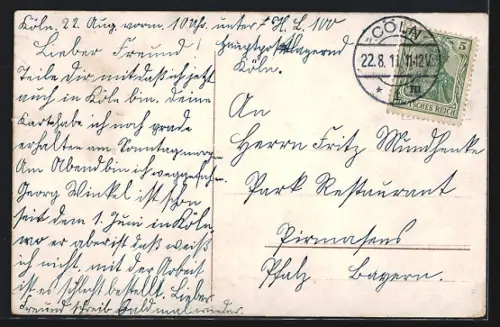 Köln. 22 Aug. vorm. 10 Uhr. unter F. H. L. 100
hauptpostlagernd
Köln.
Lieber Freund!
Teile Dir mit daß ich jetzt
auch in Köln bin. deine
Karte habe ich noch grade
erhalten am Sonntagmorgen
Am Abend bin ich weggefahren.
Georg Winkel ist schon
seit dem 1. Juni in Köln,
wo er aber ist daß weiß
ich nicht. mit der Arbeit
ist es schlecht bestellt. Lieber
Freund schreib bald mal wieder.
CÖLN
22.8.11. 11-12V
*
1m
5
DEUTSCHES REICH
An
Herrn Fritz Windhenke
Park Restaurant
Pirmasens
Pfalz Bayern.